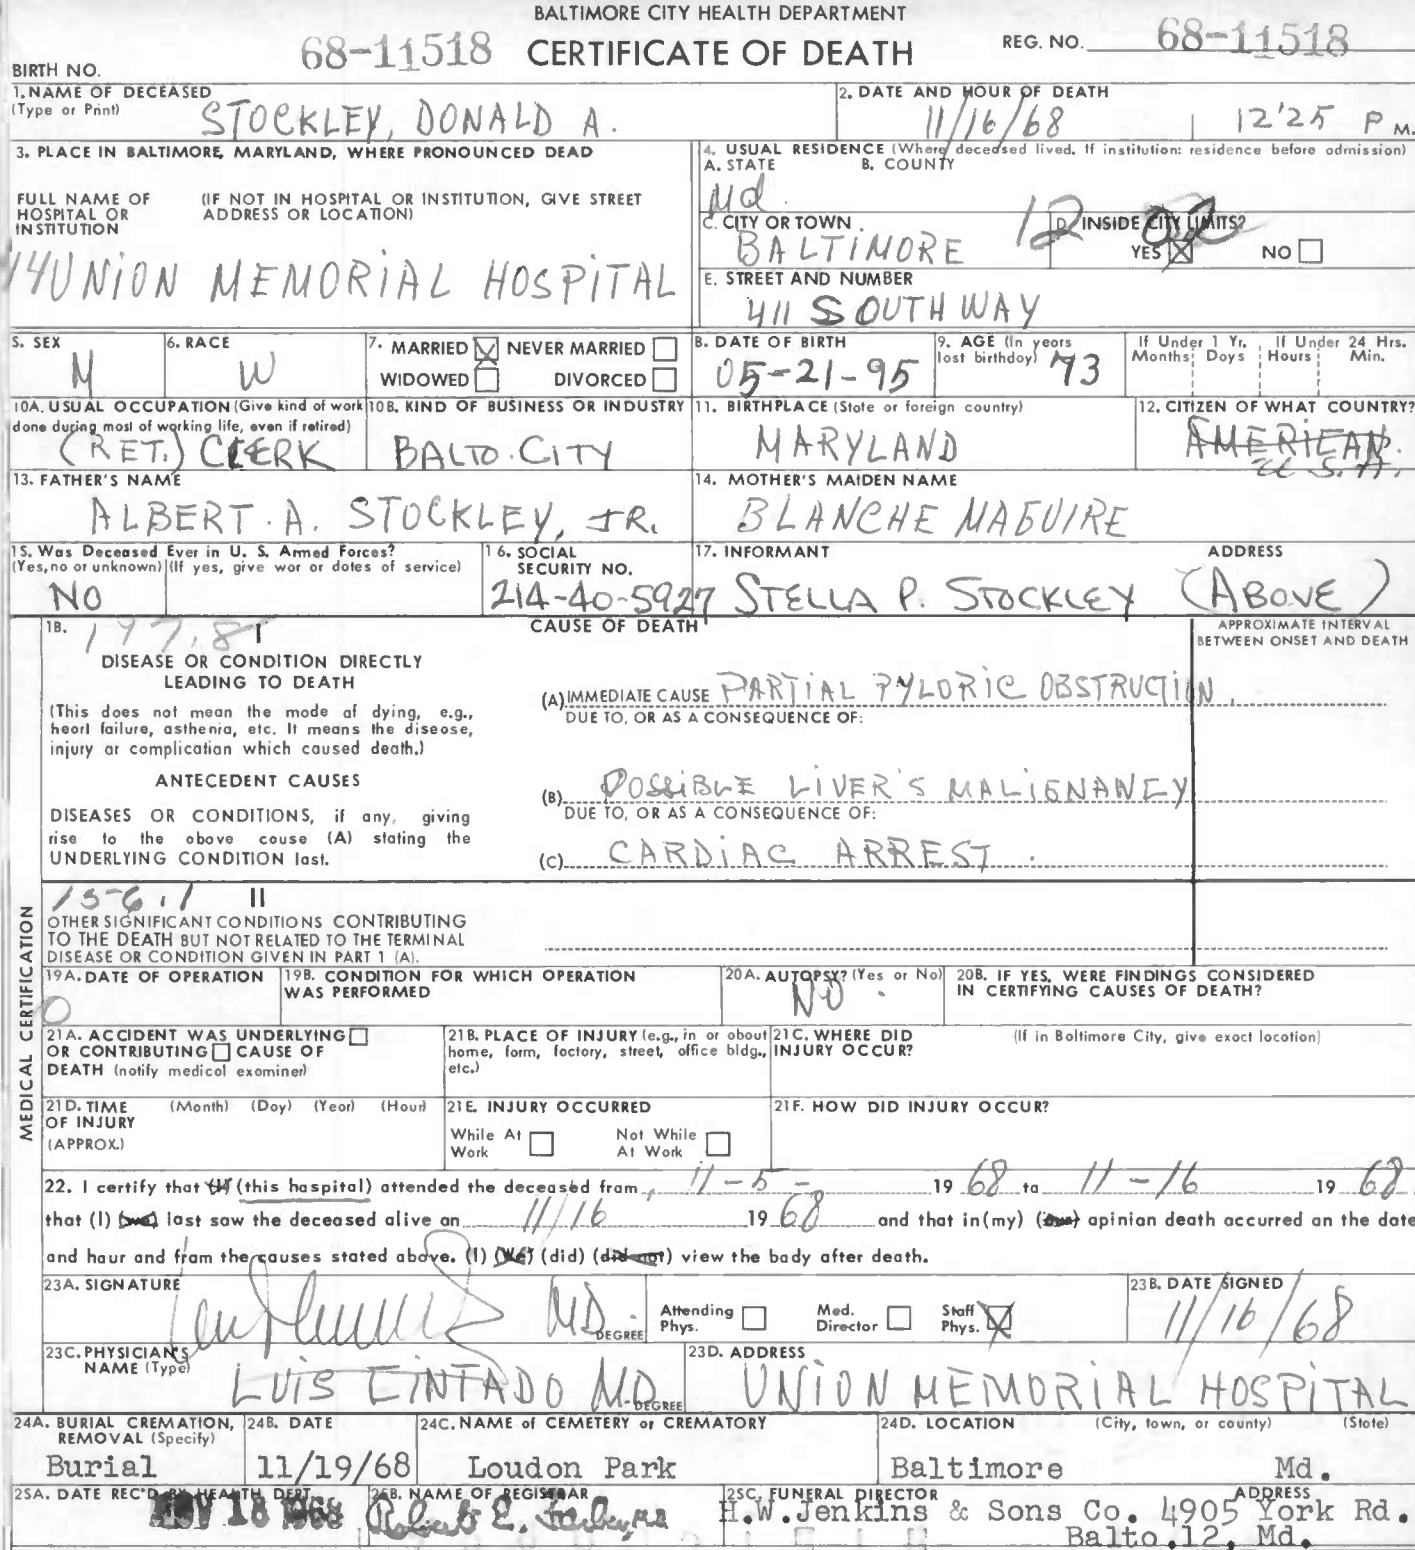 BALTIMORE CITY HEALTH DEPARTMENT
68-11518 CERTIFICATE OF DEATH REG. NO. 68-11518
BIRTH NO.
1. NAME OF DECEASED (Type or Print) STOCKLEY, DONALD A.
2. DATE AND HOUR OF DEATH 11/16/68 12'25 P M.
3. PLACE IN BALTIMORE, MARYLAND, WHERE PRONOUNCED DEAD
FULL NAME OF HOSPITAL OR INSTITUTION (IF NOT IN HOSPITAL OR INSTITUTION, GIVE STREET ADDRESS OR LOCATION)
14 UNION MEMORIAL HOSPITAL
4. USUAL RESIDENCE (Where deceased lived. If institution: residence before admission)
A. STATE B. COUNTY
Md
C. CITY OR TOWN BALTIMORE 12 02
D. INSIDE CITY LIMITS? YES NO
E. STREET AND NUMBER
411 SOUTHWAY
5. SEX M
6. RACE W
7. MARRIED NEVER MARRIED
WIDOWED DIVORCED
8. DATE OF BIRTH 05-21-95
9. AGE (In years last birthday) 73
If Under 1 Yr. Months Days If Under 24 Hrs. Hours Min.
10A. USUAL OCCUPATION (Give kind of work done during most of working life, even if retired)
(RET.) CLERK
10B. KIND OF BUSINESS OR INDUSTRY
BALTO. CITY
11. BIRTHPLACE (State or foreign country)
MARYLAND
12. CITIZEN OF WHAT COUNTRY?
AMERICAN.
U.S.A.
13. FATHER'S NAME
ALBERT. A. STOCKLEY, JR.
14. MOTHER'S MAIDEN NAME
BLANCHE MAGUIRE
15. Was Deceased Ever in U. S. Armed Forces?
(Yes, no or unknown) (If yes, give war or dates of service)
NO
16. SOCIAL SECURITY NO.
214-40-5927
17. INFORMANT ADDRESS
STELLA P. STOCKLEY (ABOVE)
18. 197.8 I CAUSE OF DEATH
APPROXIMATE INTERVAL BETWEEN ONSET AND DEATH
DISEASE OR CONDITION DIRECTLY
LEADING TO DEATH
(This does not mean the mode of dying, e.g.,
heart failure, asthenia, etc. It means the disease,
injury or complication which caused death.)
(A) IMMEDIATE CAUSE PARTIAL PYLORIC OBSTRUCTION.
DUE TO, OR AS A CONSEQUENCE OF:
ANTECEDENT CAUSES
DISEASES OR CONDITIONS, if any, giving
rise to the above cause (A) stating the
UNDERLYING CONDITION last.
(B) POSSIBLE LIVER'S MALIGNANCY
DUE TO, OR AS A CONSEQUENCE OF:
(C) CARDIAC ARREST.
156.1 II
OTHER SIGNIFICANT CONDITIONS CONTRIBUTING
TO THE DEATH BUT NOT RELATED TO THE TERMINAL
DISEASE OR CONDITION GIVEN IN PART 1 (A).
MEDICAL CERTIFICATION
19A. DATE OF OPERATION
0
19B. CONDITION FOR WHICH OPERATION WAS PERFORMED
20A. AUTOPSY? (Yes or No)
NO.
20B. IF YES, WERE FINDINGS CONSIDERED IN CERTIFYING CAUSES OF DEATH?
21A. ACCIDENT WAS UNDERLYING
OR CONTRIBUTING CAUSE OF
DEATH (notify medical examiner)
21B. PLACE OF INJURY (e.g., in or about home, farm, factory, street, office bldg., etc.)
21C. WHERE DID INJURY OCCUR? (If in Baltimore City, give exact location)
21D. TIME OF INJURY (APPROX.) (Month) (Day) (Year) (Hour)
21E. INJURY OCCURRED
While At Work Not While At Work
21F. HOW DID INJURY OCCUR?
22. I certify that (I) (this hospital) attended the deceased from 11-5- 19 68 to 11-16 19 68
that (I) (we) last saw the deceased alive on 11/16 19 68 and that in (my) (our) opinion death occurred on the date
and hour and from the causes stated above. (I) (We) (did) (did not) view the body after death.
23A. SIGNATURE M.D. DEGREE
Attending Phys. Med. Director Staff Phys.
23B. DATE SIGNED
11/16/68
23C. PHYSICIAN'S NAME (Type)
LUIS CINTADO M.D. DEGREE
23D. ADDRESS
UNION MEMORIAL HOSPITAL
24A. BURIAL CREMATION, REMOVAL (Specify)
Burial
24B. DATE
11/19/68
24C. NAME of CEMETERY or CREMATORY
Loudon Park
24D. LOCATION (City, town, or county) (State)
Baltimore Md.
25A. DATE REC'D BY HEALTH DEPT.
NOV 18 1968
25B. NAME OF REGISTRAR
Robert E. Farber, MD
25C. FUNERAL DIRECTOR ADDRESS
H.W.Jenkins & Sons Co. 4905 York Rd.
Balto.12, Md.